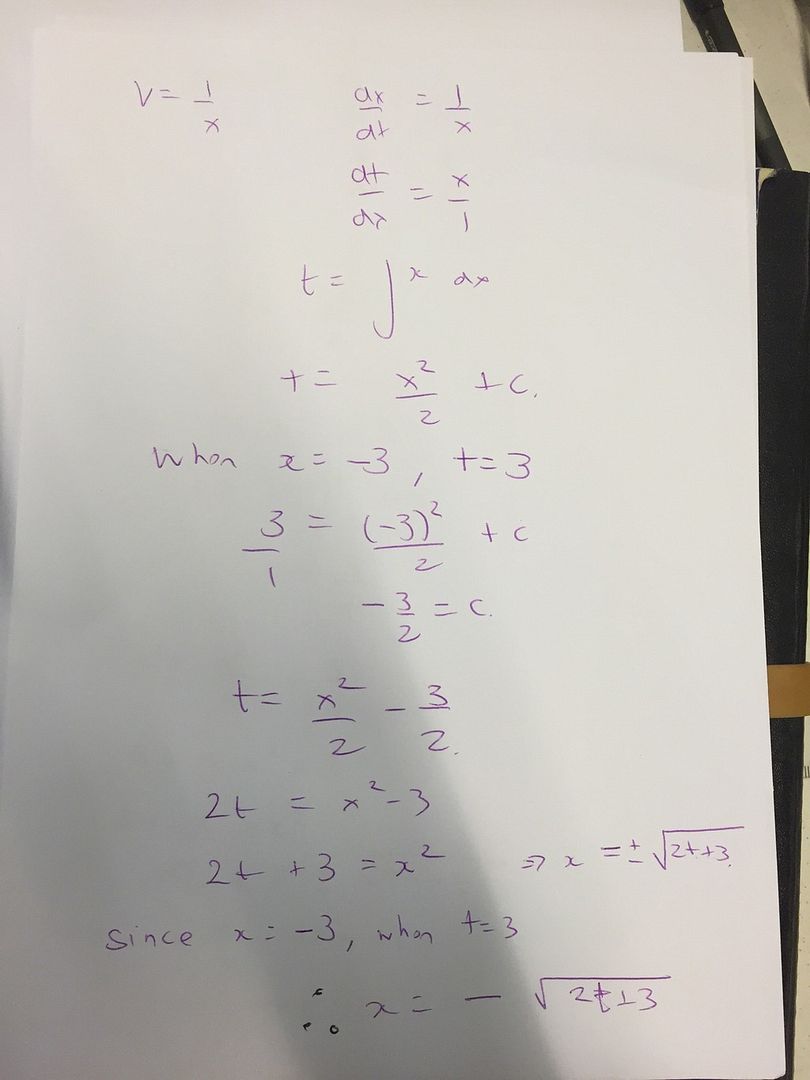 V = 1/x    dx/dt = 1/x
dt/dx = x/1
t = ∫ x dx
t = x²/2 + c.
When x = -3, t = 3
3/1 = (-3)²/2 + c
-3/2 = c.
t = x²/2 - 3/2.
2t = x² - 3
2t + 3 = x²    ⇒ x = ± √(2t+3)
Since x = -3, when t = 3
∴ x = - √(2t+3)